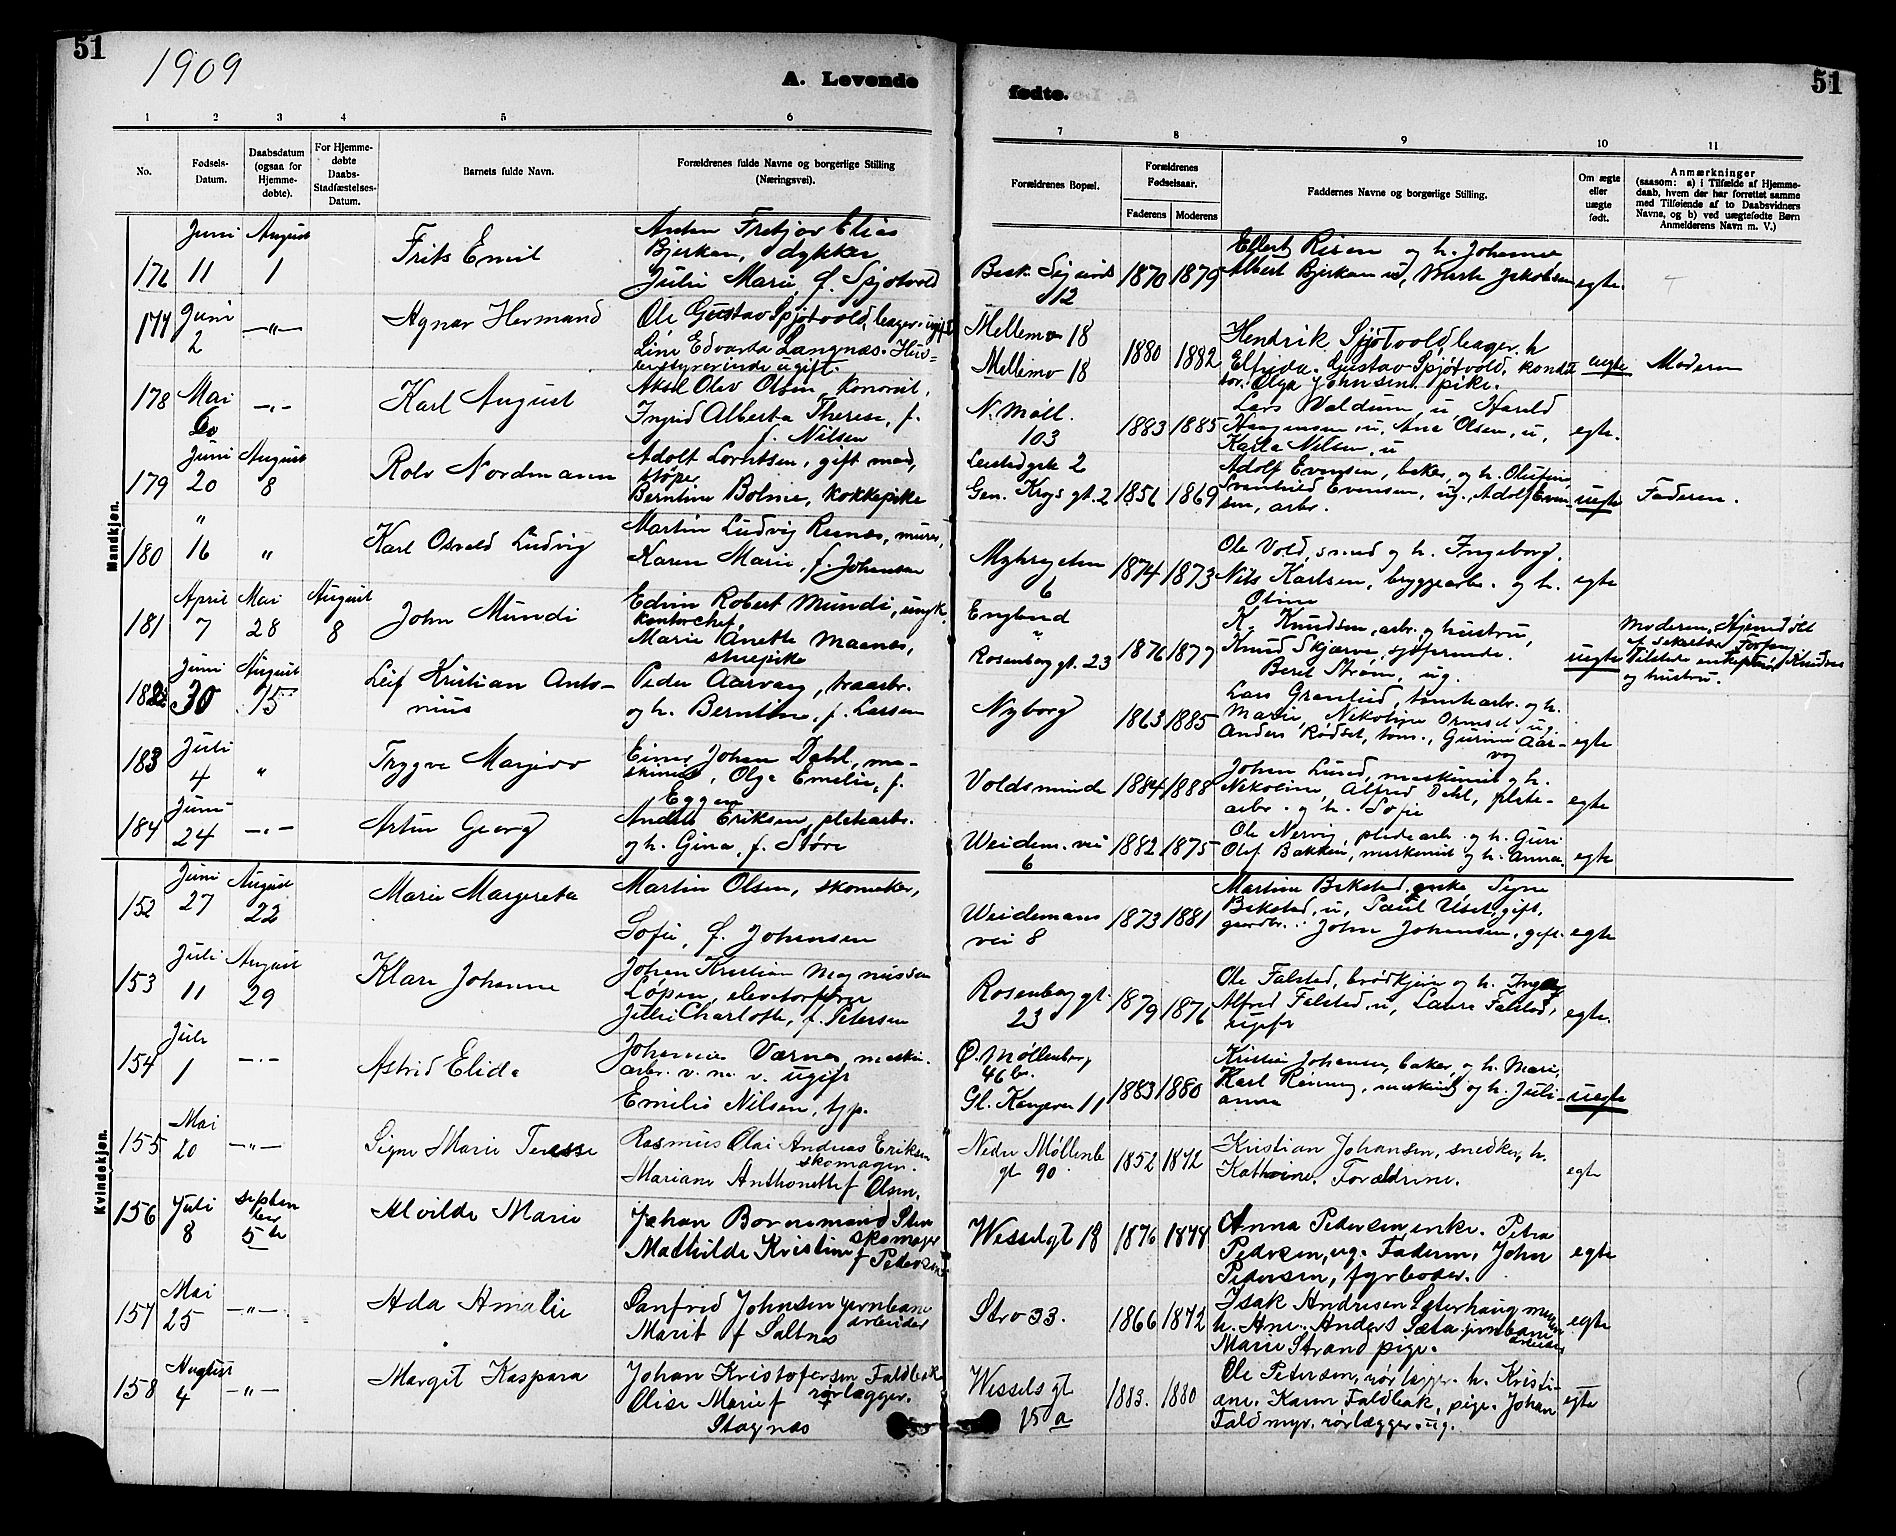 51
1909
A. Levende
fødte.
51
1 2 3 4 5 6 7 8 9 10 11
No.
Fødsels-
Datum.
Daabsdatum
(ogsaa for
Hjemme-
døbte).
For Hjemme-
døbte
Daabs-
Stadfæstelses-
Datum.
Barnets fulde Navn.
Forældrenes fulde Navne og borgerlige Stilling
(Næringsvei).
Forældrenes Bopæl.
Forældrenes
Fødselsaar.
Faderens Moderens
Faddernes Navne og borgerlige Stilling.
Om ægte
eller
uægte
født.
Anmærkninger
(saasom: a) i Tilfælde af Hjemme-
daab, hvem der har forrettet samme
med Tilføiende af to Daabsvidners
Navne, og b) ved uægtefødte Børn
Anmelderens Navn m. V.)
Mandkjøn.
176 Juni 11 August 1
Frits Emil
Anton Fritjov Elias
Bjerkan, dykker
Julie Marie, f. Spjøtvold
12
1870 1879
Ellert Risen og h. Johanne
Albert Bjerkan u, Marte Jakobsen
egte.
177 Juni 2 —"—
Agnar Hermand
Ole Gustav Spjøtvold, lager. ugift
Line Edvarda Langnæs. Hus-
bestyrerinde ugift.
Mellemv 18
Mellemv 18
1880 1882
Hendrik Spjøtvold, lager. h
Elfrida. Gustav Spjøtvold, konduk
tør. Olga Johnsen. pike.
uegte
Moderen
178 Mai —"—
Karl August
Aksel Olav Olsen,
Ingrid Alberta Therese, f.
f. Nilsen
N. Møll.
103
1883 1885
Lars Valdum, u, Harald
Haagensen u, Ane Olsen, u,
Karla Nilsen, u
egte.
179 Juni 20 August 8
Rolv Nordmann
Adolf Lorntsen, gift mand,
støper
Berntine Bolme, kokkepike
Gen. Krogs gt. 2
1856 1869
Adolf Evensen, baker, og h. Olufine,
Svanhild Evensen, ug., Adolf Even-
sen, arbr.
uegte
Faderen.
180 " 16 "
Karl Osvald Ludvig
Martin Ludvig Reinås, murer,
Karen Marie, f. Johansen
6
1874 1873
Ole Vold, smed og h. Ingeborg.
Nils Karlsen, bryggearbr. og h.
Oline
egte
181 April 7 Mai 28 August 8
John Mundi
Edvin Robert Mundi, ungk.
kontorchef,
Marie Anette Maanes,
stuepike
England
Rosenborg gt. 23
1876 1877
K. Knudsen, arb. og hustru,
Knud Skjærve, sjøfarende.
Beret Strøm, ug.
uegte
Moderen, Hjemmedøbt
af sekretær
og hustru.
182 Juni 30 August 15
Leif Kristian Anto-
nius
Peder Aarvaag, traarbr.
og h. Berntine, f. Larsen
Nyborg
1863 1885
Lars Granlund, tomtearb. og h.
Marie, Nikoline Ormset, ug.
Anders Rødset, tøm., Gurine Aar-
vog
egte
183 Juli 4 "
Trygve Margido
Einar Johan Dahl, ma-
skinist, Olga Emelie, f.
Eggen
Voldsminde
1884 1888
Johan Lund, maskinist og h.
Nikoline, Alfred Dahl, plate-
arbr. og h. Sofie
egte
184 Juni 24 —"—
Artur Georg
Anders Eriksen, platearbr.
og h. Gina, f. Støre
Weidem. vei
6
1882 1875
Ole Nervig, pladearb. og h. Guri
Olaf Bakken, maskinist og h. Anna.
egte
Kvindekjøn.
152 Juni 27 August 22
Marie Margreta
Martin Olsen, skomaker,
Sofie, f. Johansen
Weidemans
vei 8
1873 1881
Martine Bekstad, enke, Signe
Bekstad, u, Paul Uset, gift,
gaardbr. John Johansen, gift.
egte
153 Juli 11 August 29
Klara Johanne
Johan Kristian Magnussen
Løpen, elevatorfører
Julie Charlotte, f. Petersen
Rosenborg gt.
23
1879 1876
Ole Falstad, brødkjører og h. Inga
Alfred Falstad, u, Laura Falstad,
ugift
egte.
154 Juli 1 —"—
Astrid Elida
Johannes Værnes, maskin.
arbr. v. m. v. ugift
Emilie Nilsen, tjp.
Ø. Møllenberg
46 b.
Gl. Kongevei 11
1883 1880
Kristian Johansen, baker, og h. Marie,
Karl Reining, maskinist og h. Juli-
anna
uegte
155 Mai 20 —"—
Signe Marie Teresse
Rasmus Olai Andreas Eriksen
skomager.
Mariane Anthonette f Olsen.
Nedre Møllenb
gt 90.
1852 1872
Kristian Johansen, snedker, h.
Kathrine. Forældrene.
egte
156 Juli 8 septem
ber
5te
Alvilde Marie
Johan Bornemand Sten
skomager
Mathilde Kristine f Pedersen
Wesselgt 18
1876 1878
Anna Pedersen enke. Petra
Pedersen, ug. Faderen, John
Pedersen, fyrbøder.
egte
157 Mai 25 —"—
Ada Amalie
Sanfred Johnsen jernbane
arbeider
Marit f Saltnes
Stro 33.
1866 1872
Isak Andresen Sæterhaug murer
h. Ane. Anders Sæta jernbane
arbeider
Marie Strand pige.
egte
158 August 4 —"—
Margit Kaspara
Johan Kristofersen Faldbak
rørlægger.
Olise Marie f
Stagnæs
Wessels gt
15 a
1883. 1880
Ole Petersen, rørlægger. h. Kristi-
ane. Karen Faldbak, pige. Johan
Faldmyr. rørlægger. ug.
egte